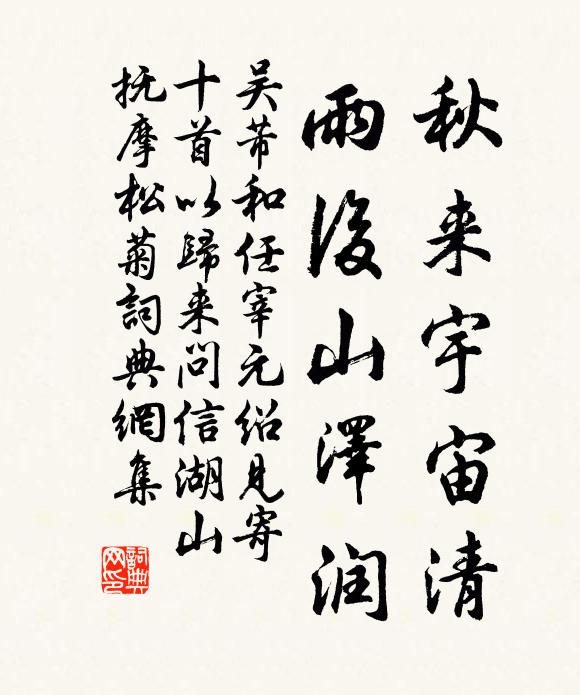 秋来宇宙清
雨後山澤润
吴芾和任宰元绍見寄
十首以歸来问信湖山
抚摩松菊詞典網集
詞典
网印